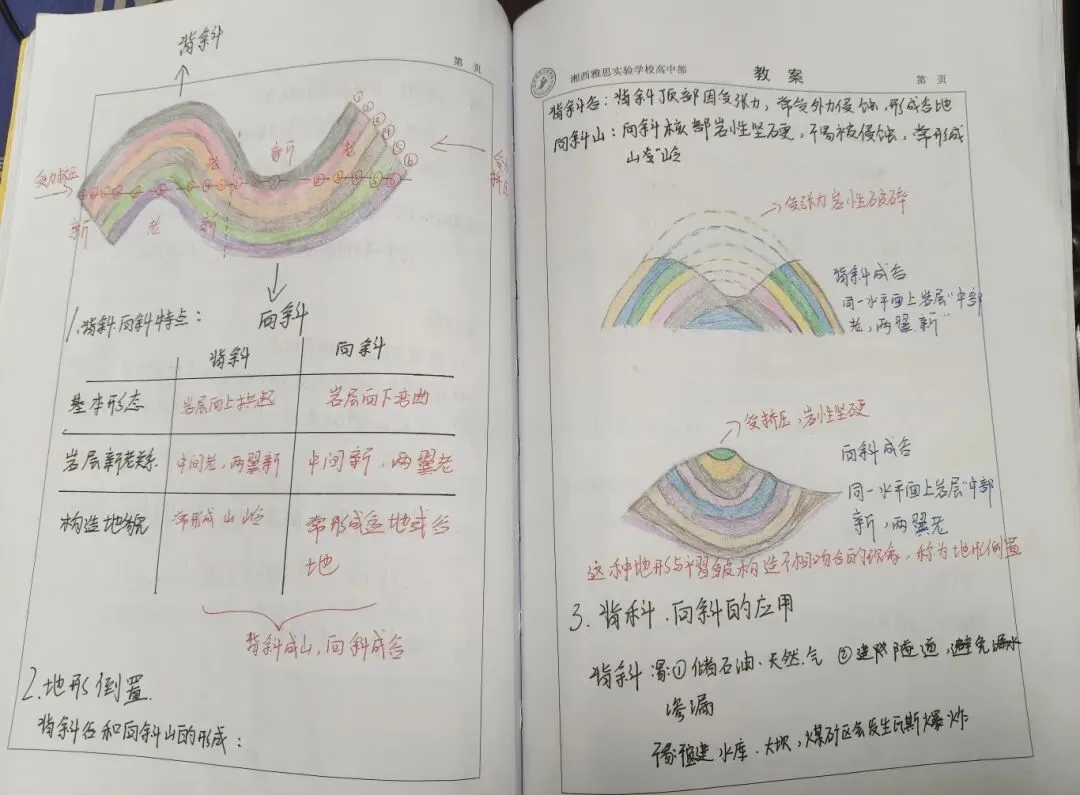 第 页
背斜
受力挤压
新 老 新
老 新 老
向斜
1.背斜.向斜特点：
背斜 向斜
基本形态 岩层向上拱起 岩层向下弯曲
岩层新老关系 中间老，两翼新 中间新，两翼老
构造地貌 常形成山岭 常形成盆地或谷
地
背斜成山，向斜成谷
2.地形倒置.
背斜谷和向斜山的形成：
湘西雅思实验学校高中部 教案 第 页
背斜谷：背斜顶部因受张力，常受外力侵蚀，形成谷地
向斜山：向斜核部岩性坚硬，不易被侵蚀，常形成
山岭
受张力岩性破碎
背斜成谷
同一水平面上岩层"中部
老，两翼新"
受挤压，岩性坚硬
向斜成谷
同一水平面上岩层"中部
新，两翼老
这种地形与褶皱构造不相吻合的现象，称为地形倒置
3.背斜.向斜的应用
背斜：①储石油.天然气 ②建隧道，避免漏水
渗漏
建水库.大坝，煤矿区会发生瓦斯爆炸